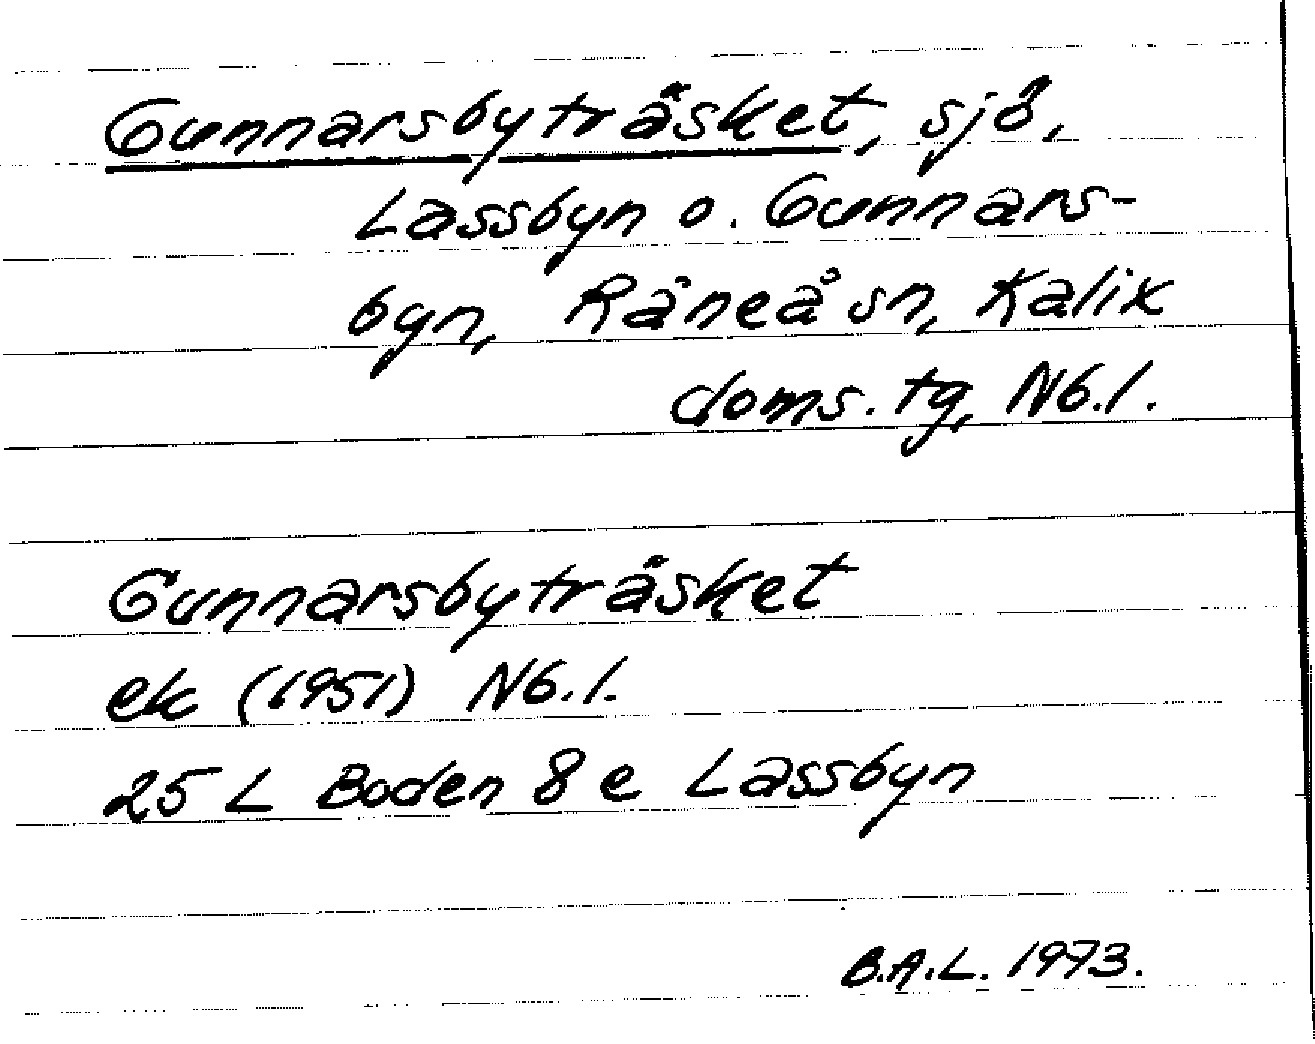 Gunnarsbyträsket, sjö,
Lassbyn o. Gunnars-
byn, Råneå sn, Kalix
doms. tg, Nb.l.
Gunnarsbyträsket
ek (1951) Nb.l.
25 L Boden 8 e Lassbyn
B.A.L. 1973.